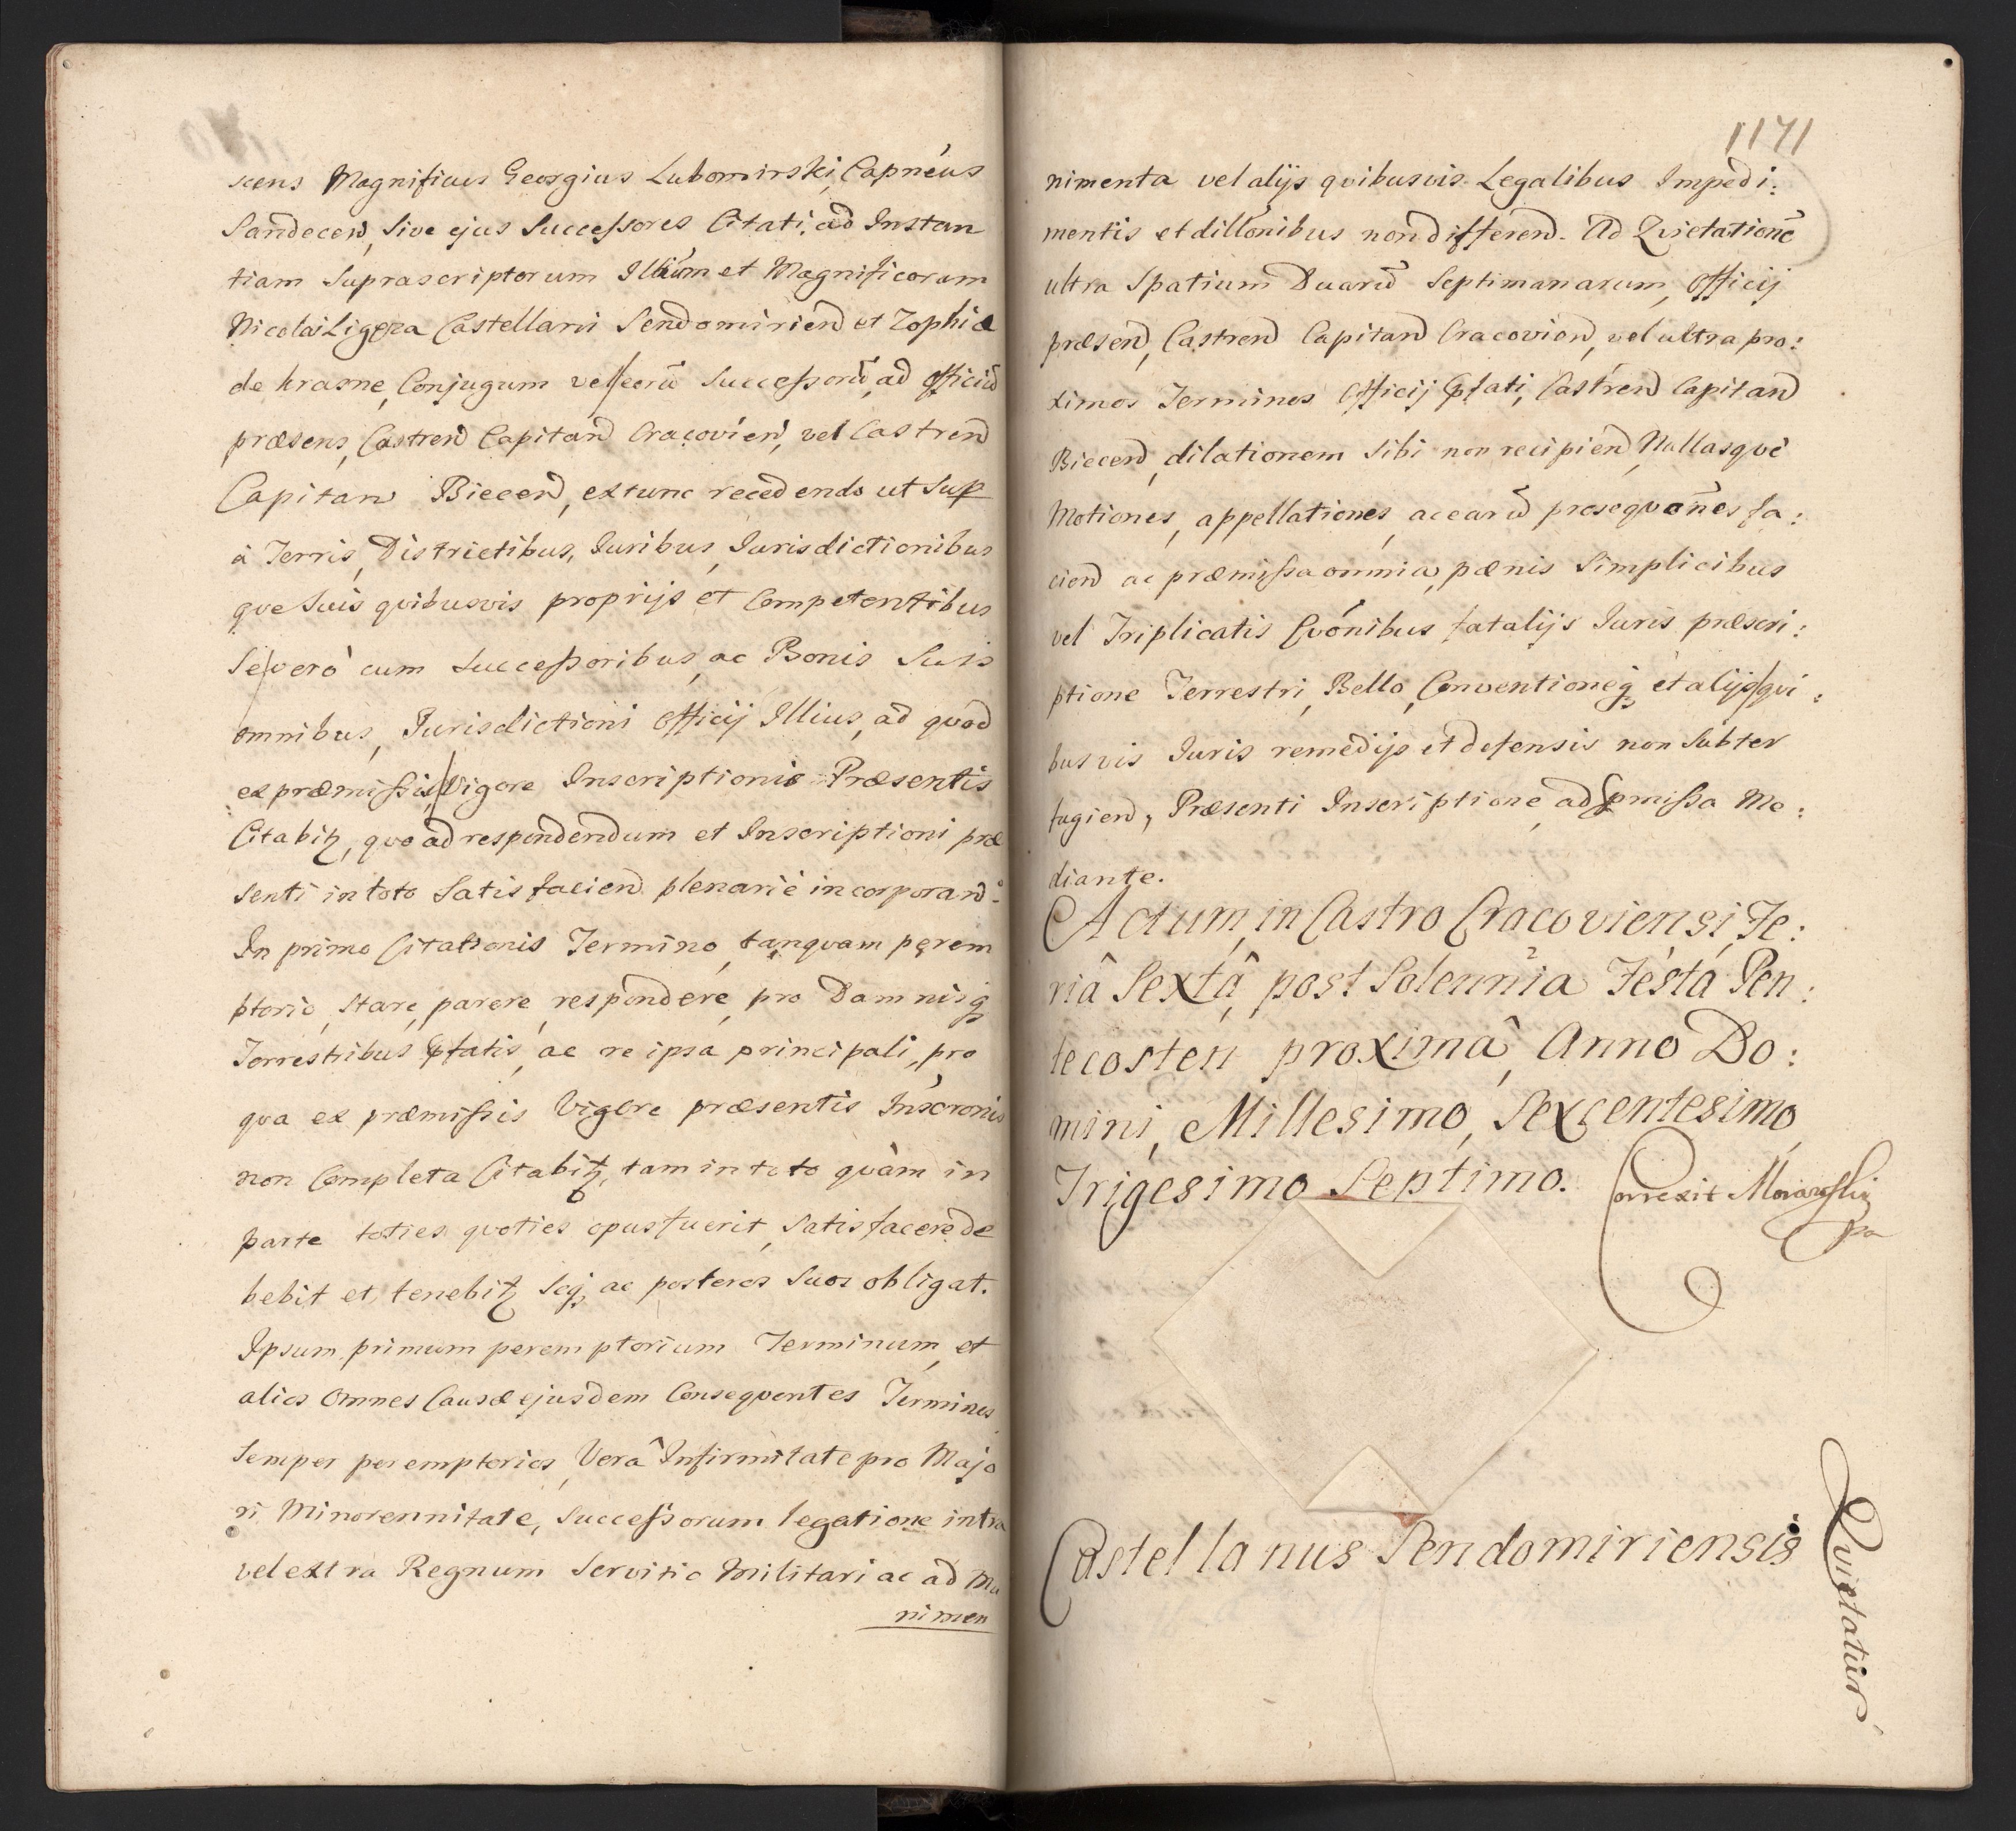 scens Magnificus Georgius Lubomirski, Capnéus
Sandecen̄, Sive ejus Successores Citati, ad Instan
tiam Suprascriptorum Illūm et Magnificorum
Nicolai Ligęza Castellani Sendomirien̄ et Zophiæ
de krasne, Conjugum vel eorū Successorū, ad Officiū
præsens, Castren̄ Capitan̄ Cracovien̄, vel Castren̄
Capitan̄ Biecen̄, extunc recedendo ut Sup
à Terris, Districtibus, Juribus, Jurisdictionibus
que Suis quibusvis proprijs et Competentibus
Se vero cum Successoribus, ac Bonis Suis
omnibus, Jurisdictioni Officij Illius, ad quod
ex præmissis, Vigore Inscriptionis Præsentis
Citabitꝫ, quo ad respondendum et Inscriptioni præ
senti in toto Satisfacien̄ plenariè incorporan̄:
In primo Citationis Termino, tanquam perem
ptorio, Stare, parere, respondere, pro Damnisqꝫ
Terrestribus pfatis, ac re ipsa principali, pro
qua ex præmissis Vigore præsentis Inscronis
non Completa Citabitꝫ, tam in toto quàm in
parte toties quoties opus fuerit, Satisfacere de
bebit et tenebitꝫ Seqꝫ ac posteros Suos obligat.
Ipsum primum peremptorium Terminum, et
alios Omnes Causæ ejusdem Consequentes Terminos
Semper peremptorios, Verâ Infirmitate pro Majo
ri Minorennitate, Successorum legatione intra
vel extra Regnum Servitio Militari ac ad Mu
nimen
1171
nimenta vel alijs quibusvis Legalibus Impedi:
mentis et dillōnibus non differen̄. Ad Quietationē
ultra Spatium Duarū Septimanarum, Officij
præsen̄, Castren̄ Capitan̄ Cracovien̄, vel ultra pro:
ximos Terminos Officij pfati, Castren̄ Capitan̄
Biecen̄, dilationem Sibi non recipien̄, Nullasque
Motiones, appellationes, ac earū prosequōnes fa:
cien̄ ac præmissa omnia, pænis Simplicibus
vel Triplicatis Evónibus fatalijs Juris præscri:
ptione Terrestri, Bello, Conventioneqꝫ et alijs qui:
busvis Juris remedijs et defensis non Subter
fugien̄, Præsenti Inscriptione, ad pmissa Me:
diante.
Actum, in Castro Cracoviensi, Fe:
riâ Sextâ, post Solennia Festa Pen:
tecosten proximâ, Anno Do:
mini, Millesimo, Sexcentesimo,
Trigesimo Septimo.
Correxit
Castellanus Sendomiriensis
Quietatur